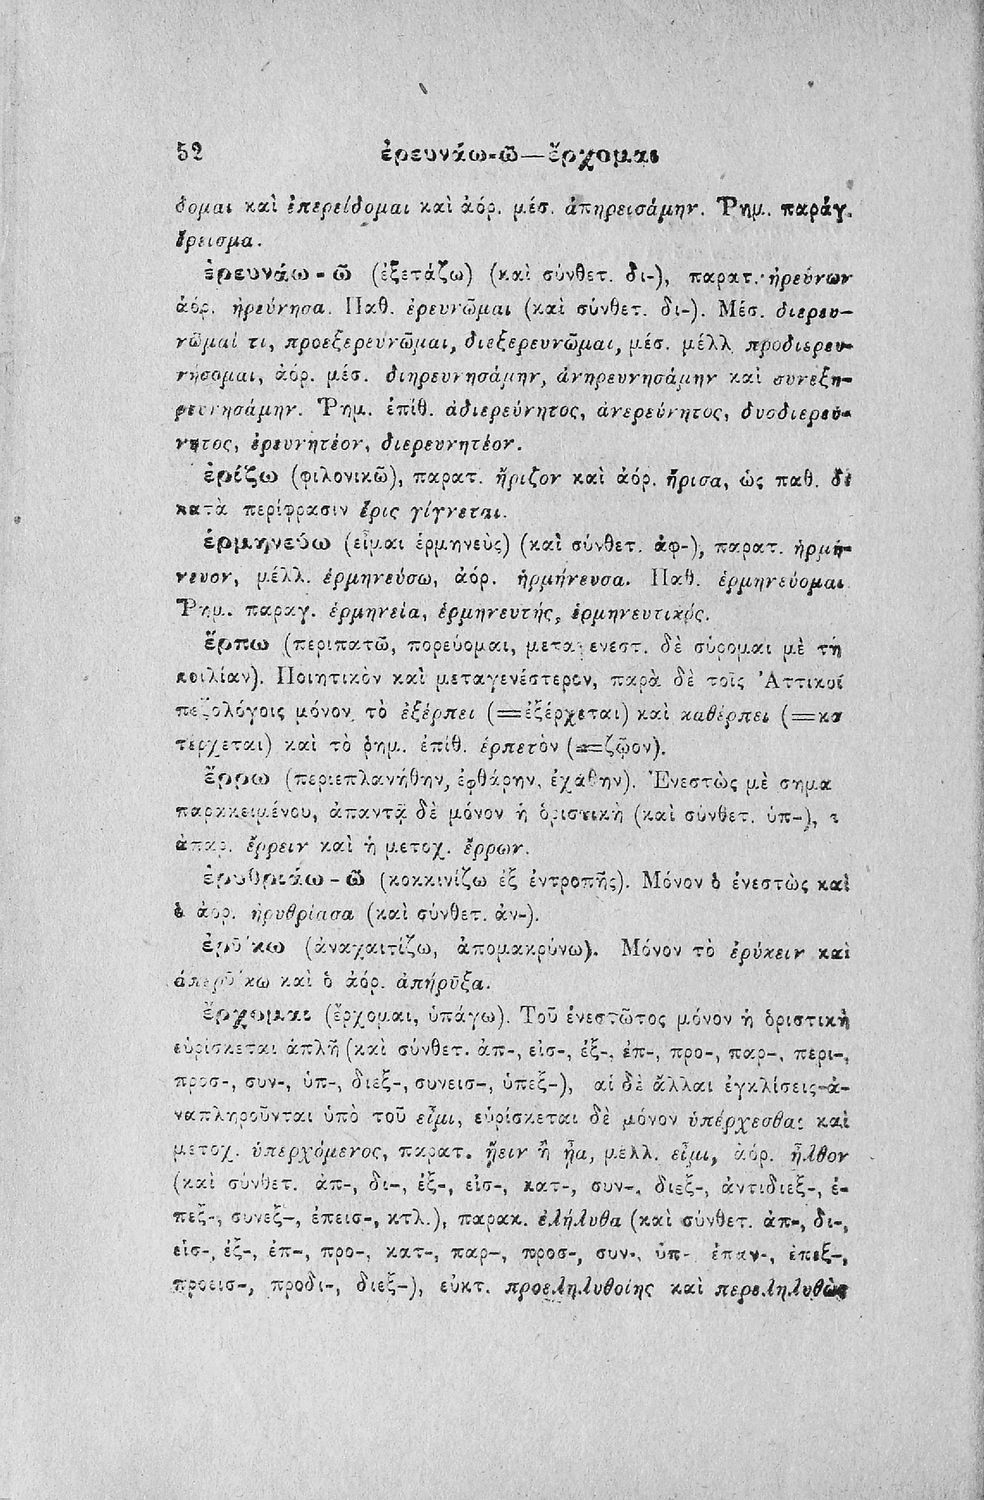 52 ἐρευνάω-ῶ—ἔρχομαι
δομαι καὶ ἐπερείδομαι καὶ ἀόρ. μέσ. ἀπηρεισάμην. Ῥημ. παράγ.
ἔρεισμα.
ἐρευνάω-ῶ (ἐξετάζω) (καὶ σύνθετ. δι-), παρατ. ἠρεύνων
ἀόρ. ἠρεύνησα. Παθ. ἐρευνῶμαι (καὶ σύνθετ. δι-). Μέσ. διερευ-
νῶμαί τι, προεξερευνῶμαι, διεξερευνῶμαι, μέσ. μέλλ. προδιερευ-
νήσομαι, ἀόρ. μέσ. διηρευνησάμην, ἀνηρευνησάμην καὶ συνεξη-
ρευνησάμην. Ῥημ. ἐπίθ. ἀδιερεύνητος, ἀνερεύνητος, δυσδιερεύ-
νητος, ἐρευνητέον, διερευνητέον.
ἐρίζω (φιλονικῶ), παρατ. ἤριζον καὶ ἀόρ. ἤρισα, ὡς παθ. δὲ
κατὰ περίφρασιν ἔρις γίγνεται.
ἑρμηνεύω (εἶμαι ἑρμηνεὺς) (καὶ σύνθετ. ἀφ-), παρατ. ἡρμή-
νευον, μέλλ. ἑρμηνεύσω, ἀόρ. ἡρμήνευσα. Παθ. ἑρμηνεύομαι
Ῥημ. παραγ. ἑρμηνεία, ἑρμηνευτής, ἑρμηνευτικός.
ἕρπω (περιπατῶ, πορεύομαι, μεταγενεστ. δὲ σύρομαι μὲ τὴ
κοιλίαν). Ποιητικὸν καὶ μεταγενέστερον, παρὰ δὲ τοῖς Ἀττικοῖ
πεζολόγοις μόνον τὸ ἐξέρπει (=ἐξέρχεται) καὶ καθέρπει (=κα
τέρχεται) καὶ τὸ ῥημ. ἐπίθ. ἑρπετὸν (=ζῷον).
ἔρρω (περιεπλανήθην, ἐφθάρην, ἐχάθην). Ἐνεστὼς μὲ σημα
παρακειμένου, ἀπαντᾷ δὲ μόνον ἡ ὁριστικὴ (καὶ σύνθετ. ὑπ-),
ἀπαρ. ἔρρειν καὶ ἡ μετοχ. ἔρρων.
ἐρυθριάω-ῶ (κοκκινίζω ἐξ ἐντροπῆς). Μόνον ὁ ἐνεστὼς καὶ
ὁ ἀόρ. ἠρυθρίασα (καὶ σύνθετ. ἀν-).
ἐρῡ́κω (ἀναχαιτίζω, ἀπομακρύνω). Μόνον τὸ ἐρύκειν καὶ
ἀπερῡ́κω καὶ ὁ ἀόρ. ἀπήρῡξα.
ἔρχομαι (ἔρχομαι, ὑπάγω). Τοῦ ἐνεστῶτος μόνον ἡ ὁριστικὴ
εὑρίσκεται ἁπλῆ (καὶ σύνθετ. ἀπ-, εἰσ-, ἐξ-, ἐπ-, προ-, παρ-, περι-,
προσ-, συν-, ὑπ-, διεξ-, συνεισ-, ὑπεξ-), αἱ δὲ ἄλλαι ἐγκλίσεις ἀ-
ναπληροῦνται ὑπὸ τοῦ εἶμι, εὑρίσκεται δὲ μόνον ὑπέρχεσθαι καὶ
μετοχ. ὑπερχόμενος, παρατ. ᾔειν ἢ ᾖα, μελλ. εἶμι, ἀόρ. ἦλθον
(καὶ σύνθετ. ἀπ-, δι-, ἐξ-, εἰσ-, κατ-, συν-, διεξ-, ἀντιδιεξ-, ἐ-
πεξ-, συνεξ-, ἐπεισ-, κτλ.), παρακ. ἐλήλυθα (καὶ σύνθετ. ἀπ-, δι-,
εἰσ-, ἐξ-, ἐπ-, προ-, κατ-, παρ-, προσ-, συν-, ὑπ- ἐπαν-, ἐπεξ-,
προεισ-, προδι-, διεξ-), εὐκτ. προεληλυθοίης καὶ περεληλυθὼς